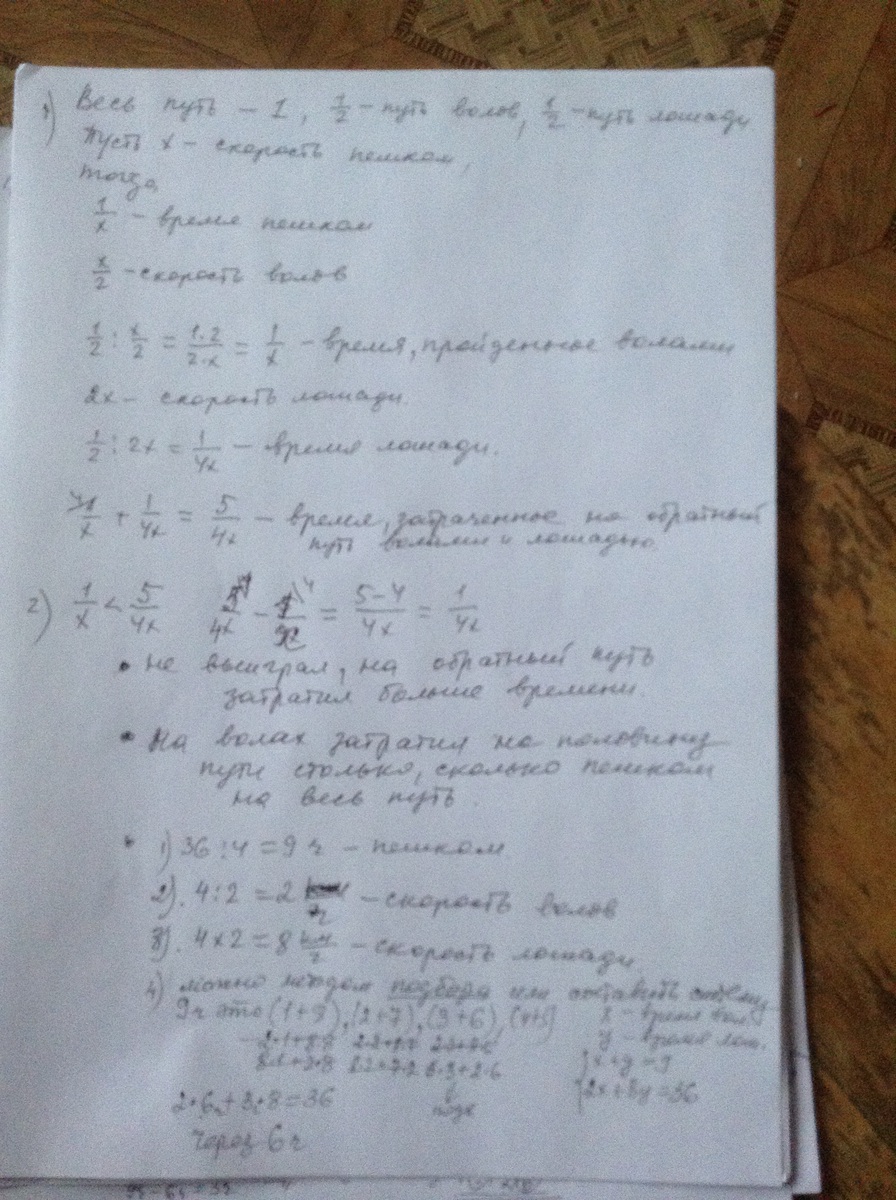 1) Весь путь – 1, 1/2 – путь волов, 1/2 – путь лошади
Пусть x – скорость пешком,
тогда
1/x – время пешком
x/2 – скорость волов
1/2 : x/2 = 1·2/2·x = 1/x – время, пройденное волами
2x – скорость лошади.
1/2 : 2x = 1/4x – время лошади.
1/x + 1/4x = 5/4x – время, затраченное на обратный
путь волами и лошадью.
2) 1/x < 5/4x = 5-4/4x = 1/4x
• не выиграл, на обратный путь
затратил больше времени.
• На волах затратил на половину
пути столько, сколько пешком
на весь путь.
• 1) 36 : 4 = 9 ч – пешком
2). 4 : 2 = 2 – скорость волов
3). 4 x 2 = 8 км/ч – скорость лошади
4) можно методом подбора или составить систему
9ч это (2+7), (3+6), x – время вол.
y – время лош.
x + y = 9
2x + 8y = 36
2·6 + 3·8 = 36
подх
Через 6 ч